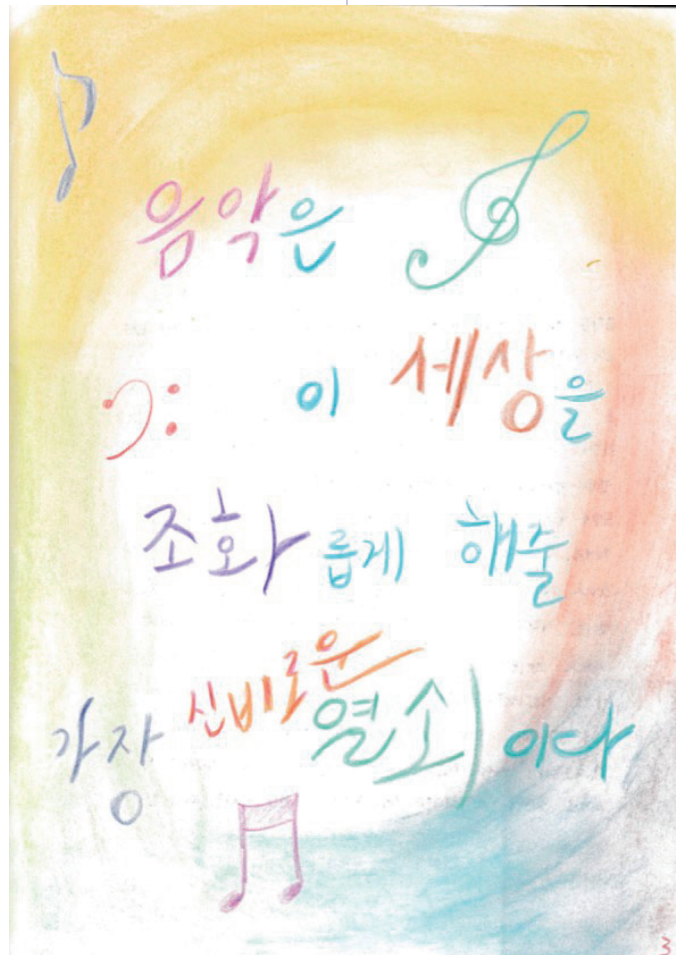 음악은
이 세상을
조화롭게 해줄
가장 신비로운 열쇠이다
3